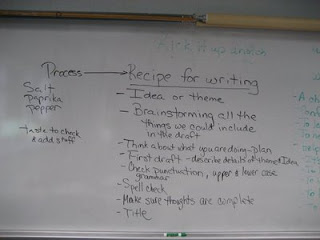 Kick it up a notch
Process → Recipe for writing
Salt
paprika
pepper
- taste to check
& add stuff
- Idea or theme
- Brainstorming all the
things we could include
in the draft
- Think about what you are doing - plan
- First draft - describe details of theme & Idea
- Check punctuation, upper & lower case
grammar
- Spell check
- Make sure thoughts are complete
- Title